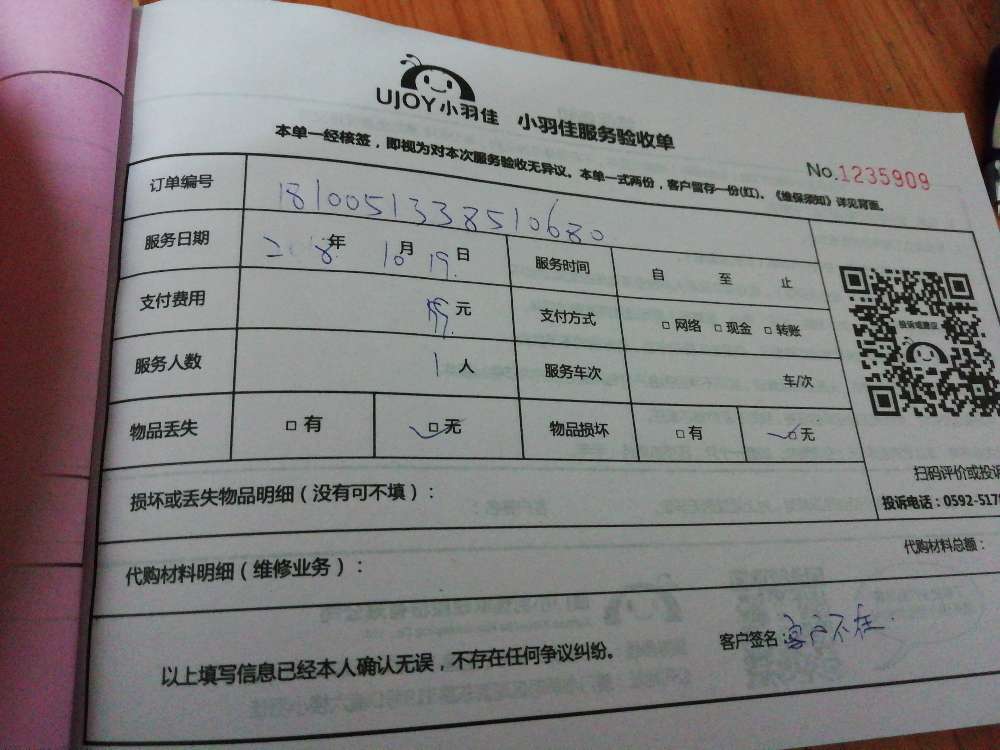 UJOY小羽佳 小羽佳服务验收单
本单一经核签，即视为对本次服务验收无异议。本单一式两份，客户留存一份(红)。《维保须知》详见背面。
No.1235909
订单编号 1810051338510680
服务日期 2018年 10月 19日 服务时间 自 至 止
支付费用 元 支付方式 □网络 □现金 □转账
投诉或建议
服务人数 1人 服务车次 车/次
物品丢失 □有 □无 物品损坏 □有 □无
扫码评价或投诉
投诉电话：0592-517
损坏或丢失物品明细（没有可不填）：
代购材料明细（维修业务）： 代购材料总额：
以上填写信息已经本人确认无误，不存在任何争议纠纷。 客户签名：客户不在